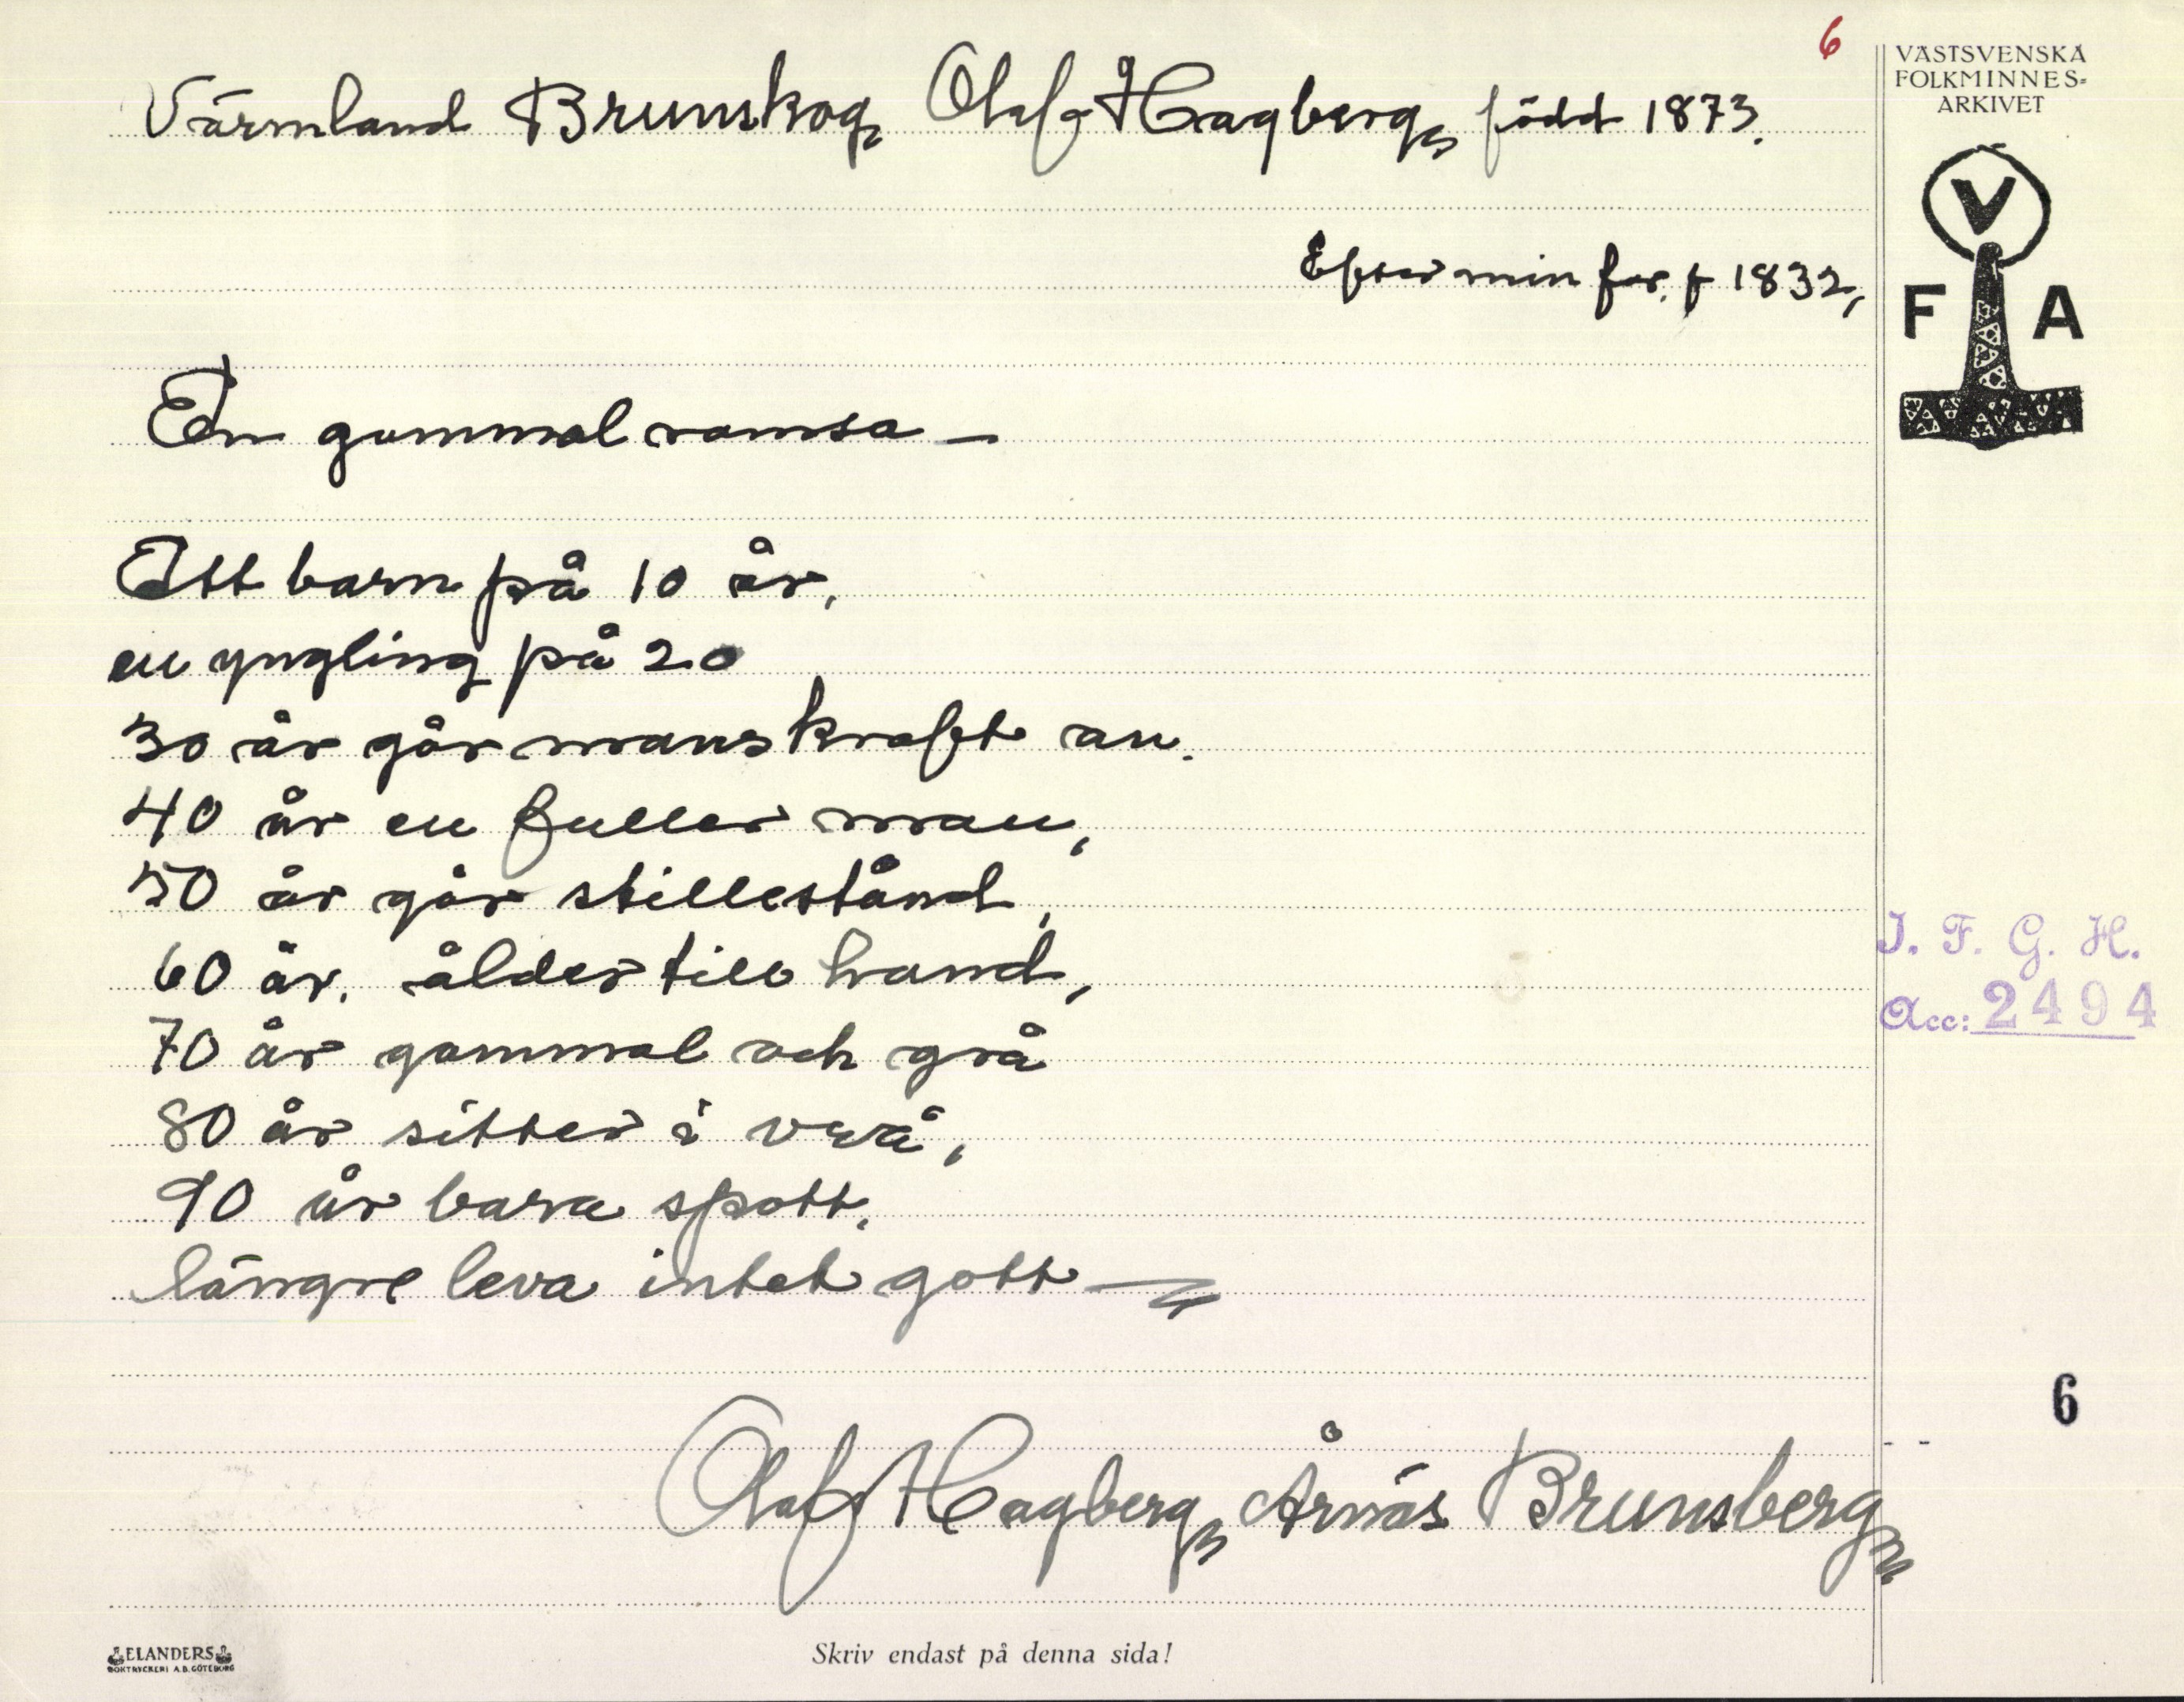 6
Värmland Brunskog, Olaf Hagberg, född 1873.
Efter min far, f 1832,
En gammal ramsa —
Ett barn på 10 år,
en yngling på 20
30 år går manskraft an.
40 år en fuller man,
50 år går stillestånd,
60 år. ålder till hand,
70 år gammal och grå
80 år sitter i vrå,
90 år bara spott,
längre leva intet gott —
Olaf Hagberg, Årnäs Brunsberg
VÄSTSVENSKA
FOLKMINNES-
ARKIVET
V
F A
I. F. G. H.
Acc: 2494
6
ELANDERS
BOKTRYCKERI A.B. GÖTEBORG
Skriv endast på denna sida!